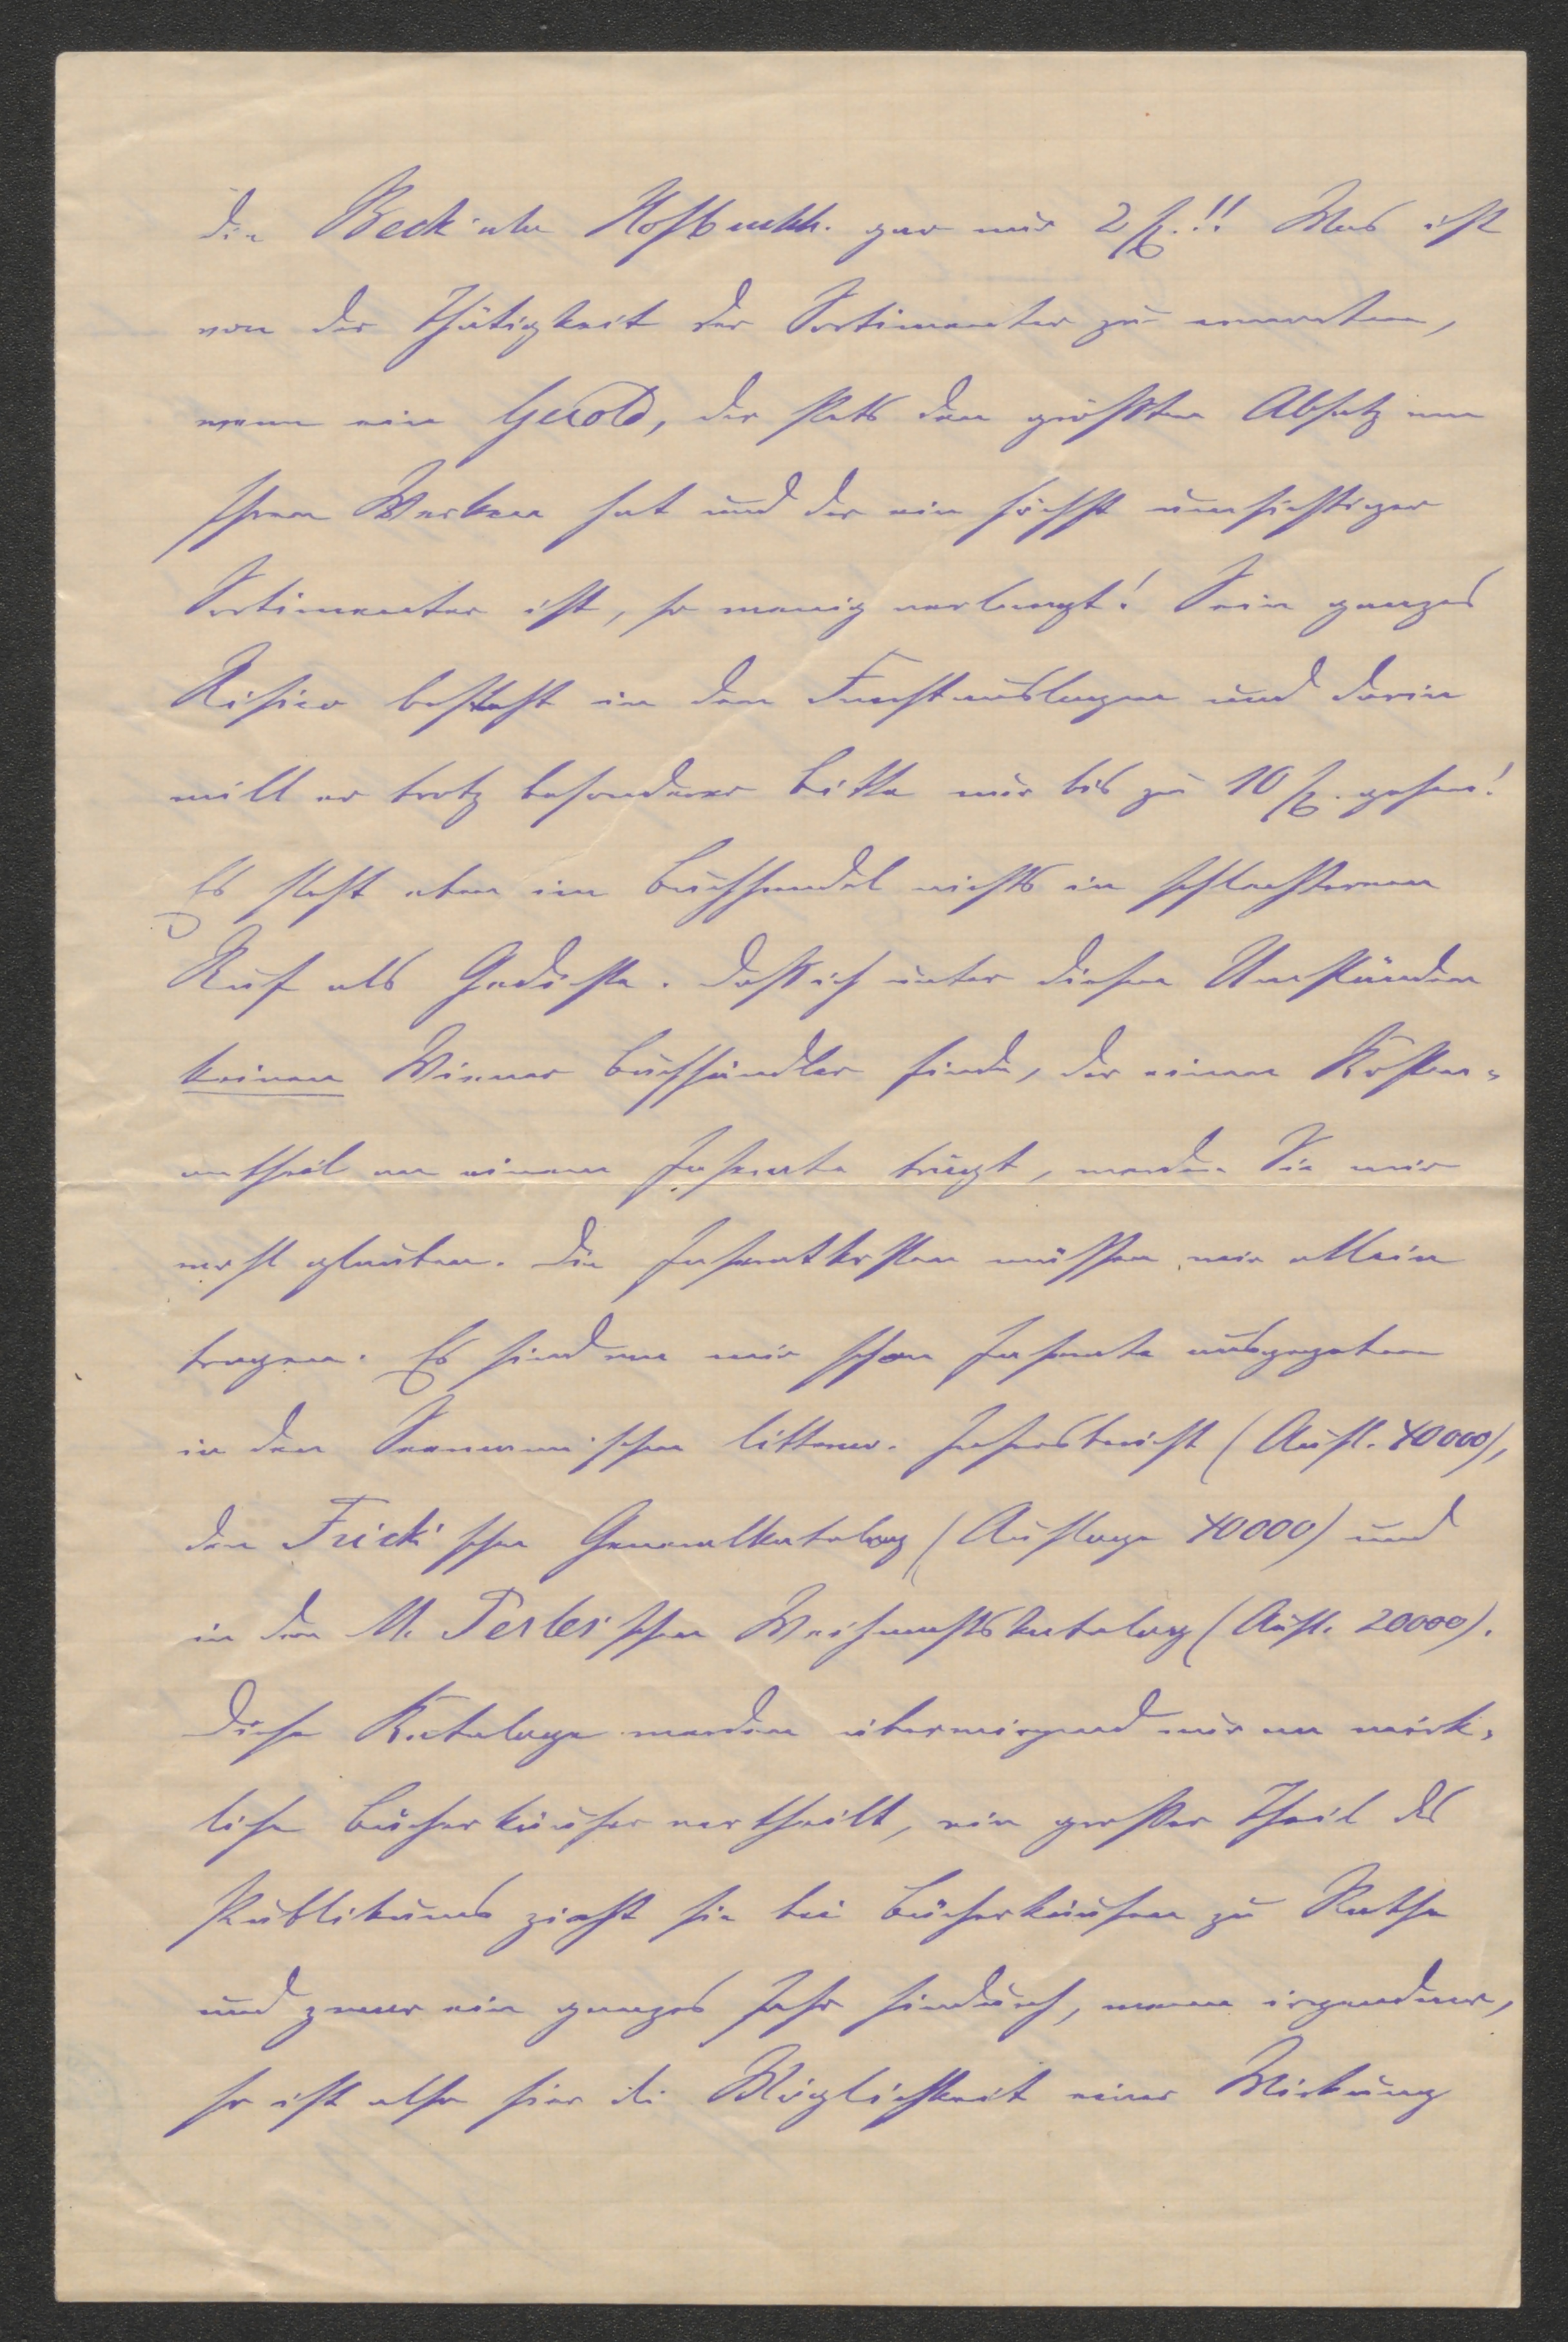 die Beck'sche Hofbuchh. gar nur 2 Ex.!! Was ist
von der Thätigkeit der Sortimenter zu erwarten,
wenn ein Gerold, der stets den größten Absatz von
Ihren Werken hat und der ein höchst umsichtiger
Sortimenter ist, so wenig verlangt! Sein ganzes
Risico besteht in den Frachtauslagen und darin
will er trotz besonderer Bitte nur bis zu 10 Ex. gehen!
Es steht eben im Buchhandel nichts in schlechterem
Ruf als Gedichte. Daß ich unter diesen Umständen
keinen Wiener Buchhändler finde, der einen Kosten-
antheil an einem Inserate trägt, werden Sie mir
wohl glauben. Die Inseratkosten müssen wir allein
tragen. Es sind von mir schon Inserate aufgegeben
in den Seemann'schen litterar. Jahresbericht (Aufl. 40000),
den Frick'schen Generalkatalog (Auflage 40000) und
in den M. Perles'schen Weihnachtskatalog (Aufl. 20000).
Diese Kataloge werden überwiegend nur an wirk-
liche Bücherkäufer vertheilt, ein großer Theil des
Publikums zieht sie bei Bücherkäufen zu Rathe
und zwar ein ganzes Jahr hindurch, wenn irgendwo,
so ist also hier die Möglichkeit einer Wirkung